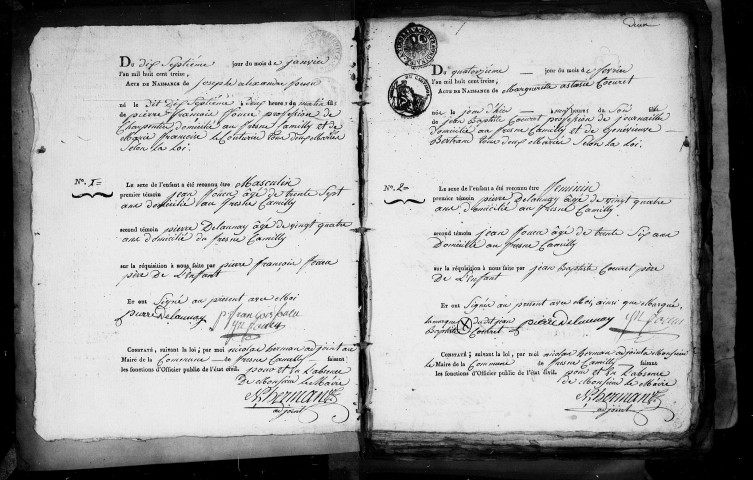 Du dix Septiéme jour du mois de janvier
l'an mil huit cent treize,
Acte de Naissance de Joseph alexandre foucu
né le Dit Dix Septiéme à Deux heures du matin fils
de pierre françois foucu profession de
Charpentier domicilié au fresne Camilly et de
Marie françoise Le Couturier tous deux Mariés
Selon la Loi.
N.º 1=
Le sexe de l'enfant a été reconnu être Masculin
premier témoin jean foucu âgé de trente Sept
ans domicilié au fresne Camilly
second témoin pierre Delaunay âgé de vingt quatre
ans domicilié du fresne Camilly
sur la réquisition à nous faite par pierre françois foucu
père de L'Enfant
Et ont Signé au présent avec Moi
pierre Delaunay p françois foucu
Constaté, suivant la loi, par moi nicolas herman adjoint au
Maire de la Commune de fresne Camilly faisant
les fonctions d'Officier public de l'état civil. pour et En L'absence
de Monsieur le Maire
N. hermant
adjoint
Deux
Du quatorzieme jour du mois de fevrier
l'an mil huit cent treize,
Acte de Naissance de Marguerite astasie Couret
née le jour d'hier à neuf heures du Soir fille
de jean Baptiste Couret profession de journaillie
Domicilié au fresne Camilly et de Genevieuve
Bertran tous deux Mariés Selon la Loi.
N.º 2=
Le sexe de l'enfant a été reconnu être feminin
premier témoin pierre Delaunay âgé de vingt quatre
ans domicilié au fresne Camilly
second témoin jean foucu âgé de trente Six ans
Domicilié au fresne Camilly
sur la réquisition à nous faite par jean Baptiste Couret père
de L'Enfant
Et ont Signé au présent avec Moi, ainsi que Marqué,
la marque du dit jean
Baptiste Couret pierre Delaunay
Constaté, suivant la loi, par moi nicolas herman adjoint a Monsieur
le Maire de la Commune de fresne Camilly faisant
les fonctions d'Officier public de l'état civil. pour et En L'absence
de Monsieur le Maire
N. hermant
adjoint